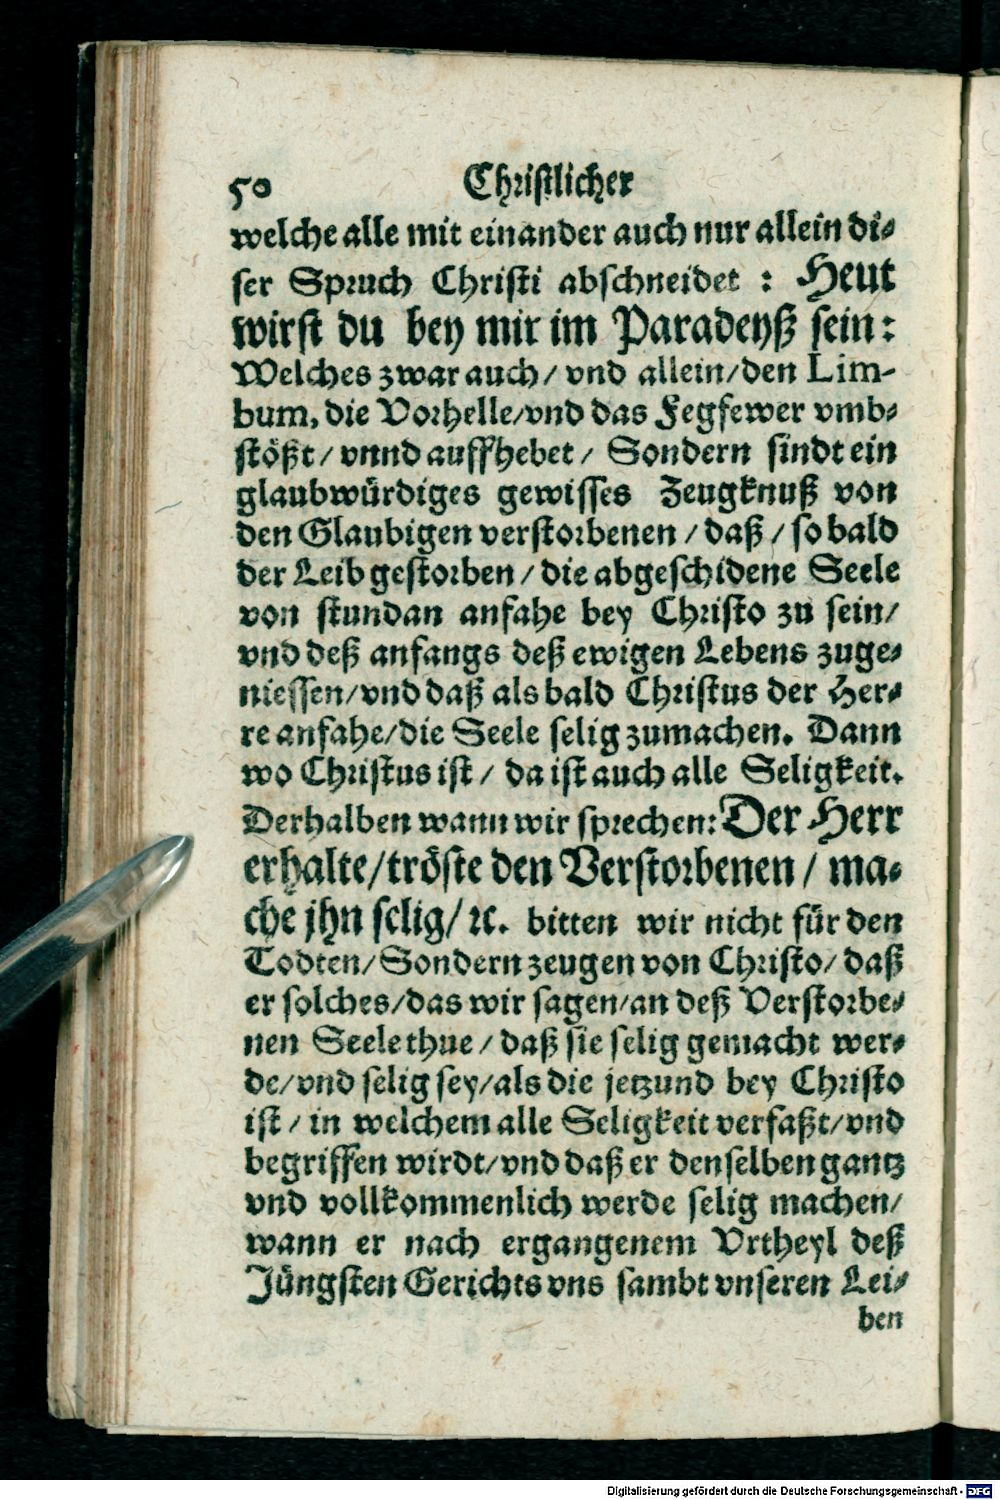 50 Christlicher
welche alle mit einander auch nur allein di-
ser Spruch Christi abschneidet : Heut
wirst du bey mir im Paradeyß sein:
Welches zwar auch/ vnd allein/den Lim-
bum, die Vorhelle/vnd das Fegfewer vmb-
stößt/ vnnd auffhebet/ Sondern sindt ein
glaubwürdiges gewisses Zeugknuß von
den Glaubigen verstorbenen/ daß/ so bald
der Leib gestorben/ die abgeschidene Seele
von stundan anfahe bey Christo zu sein/
vnd deß anfangs deß ewigen Lebens zuge-
niessen/vnd daß als bald Christus der Her-
re anfahe/die Seele selig zumachen. Dann
wo Christus ist/ da ist auch alle Seligkeit.
Derhalben wann wir sprechen: Der Herr
erhalte/tröste den Verstorbenen/ ma-
che jhn selig/ ꝛc. bitten wir nicht für den
Todten/ Sondern zeugen von Christo/ daß
er solches/das wir sagen/an deß Verstorbe-
nen Seele thue/ daß sie selig gemacht wer-
de/vnd selig sey/als die jetzund bey Christo
ist/ in welchem alle Seligkeit verfaßt/vnd
begriffen wirdt/vnd daß er denselben gantz
vnd vollkommenlich werde selig machen/
wann er nach ergangenem Vrtheyl deß
Jüngsten Gerichts vns sambt vnseren Lei-
ben
Digitalisierung gefördert durch die Deutsche Forschungsgemeinschaft - DFG